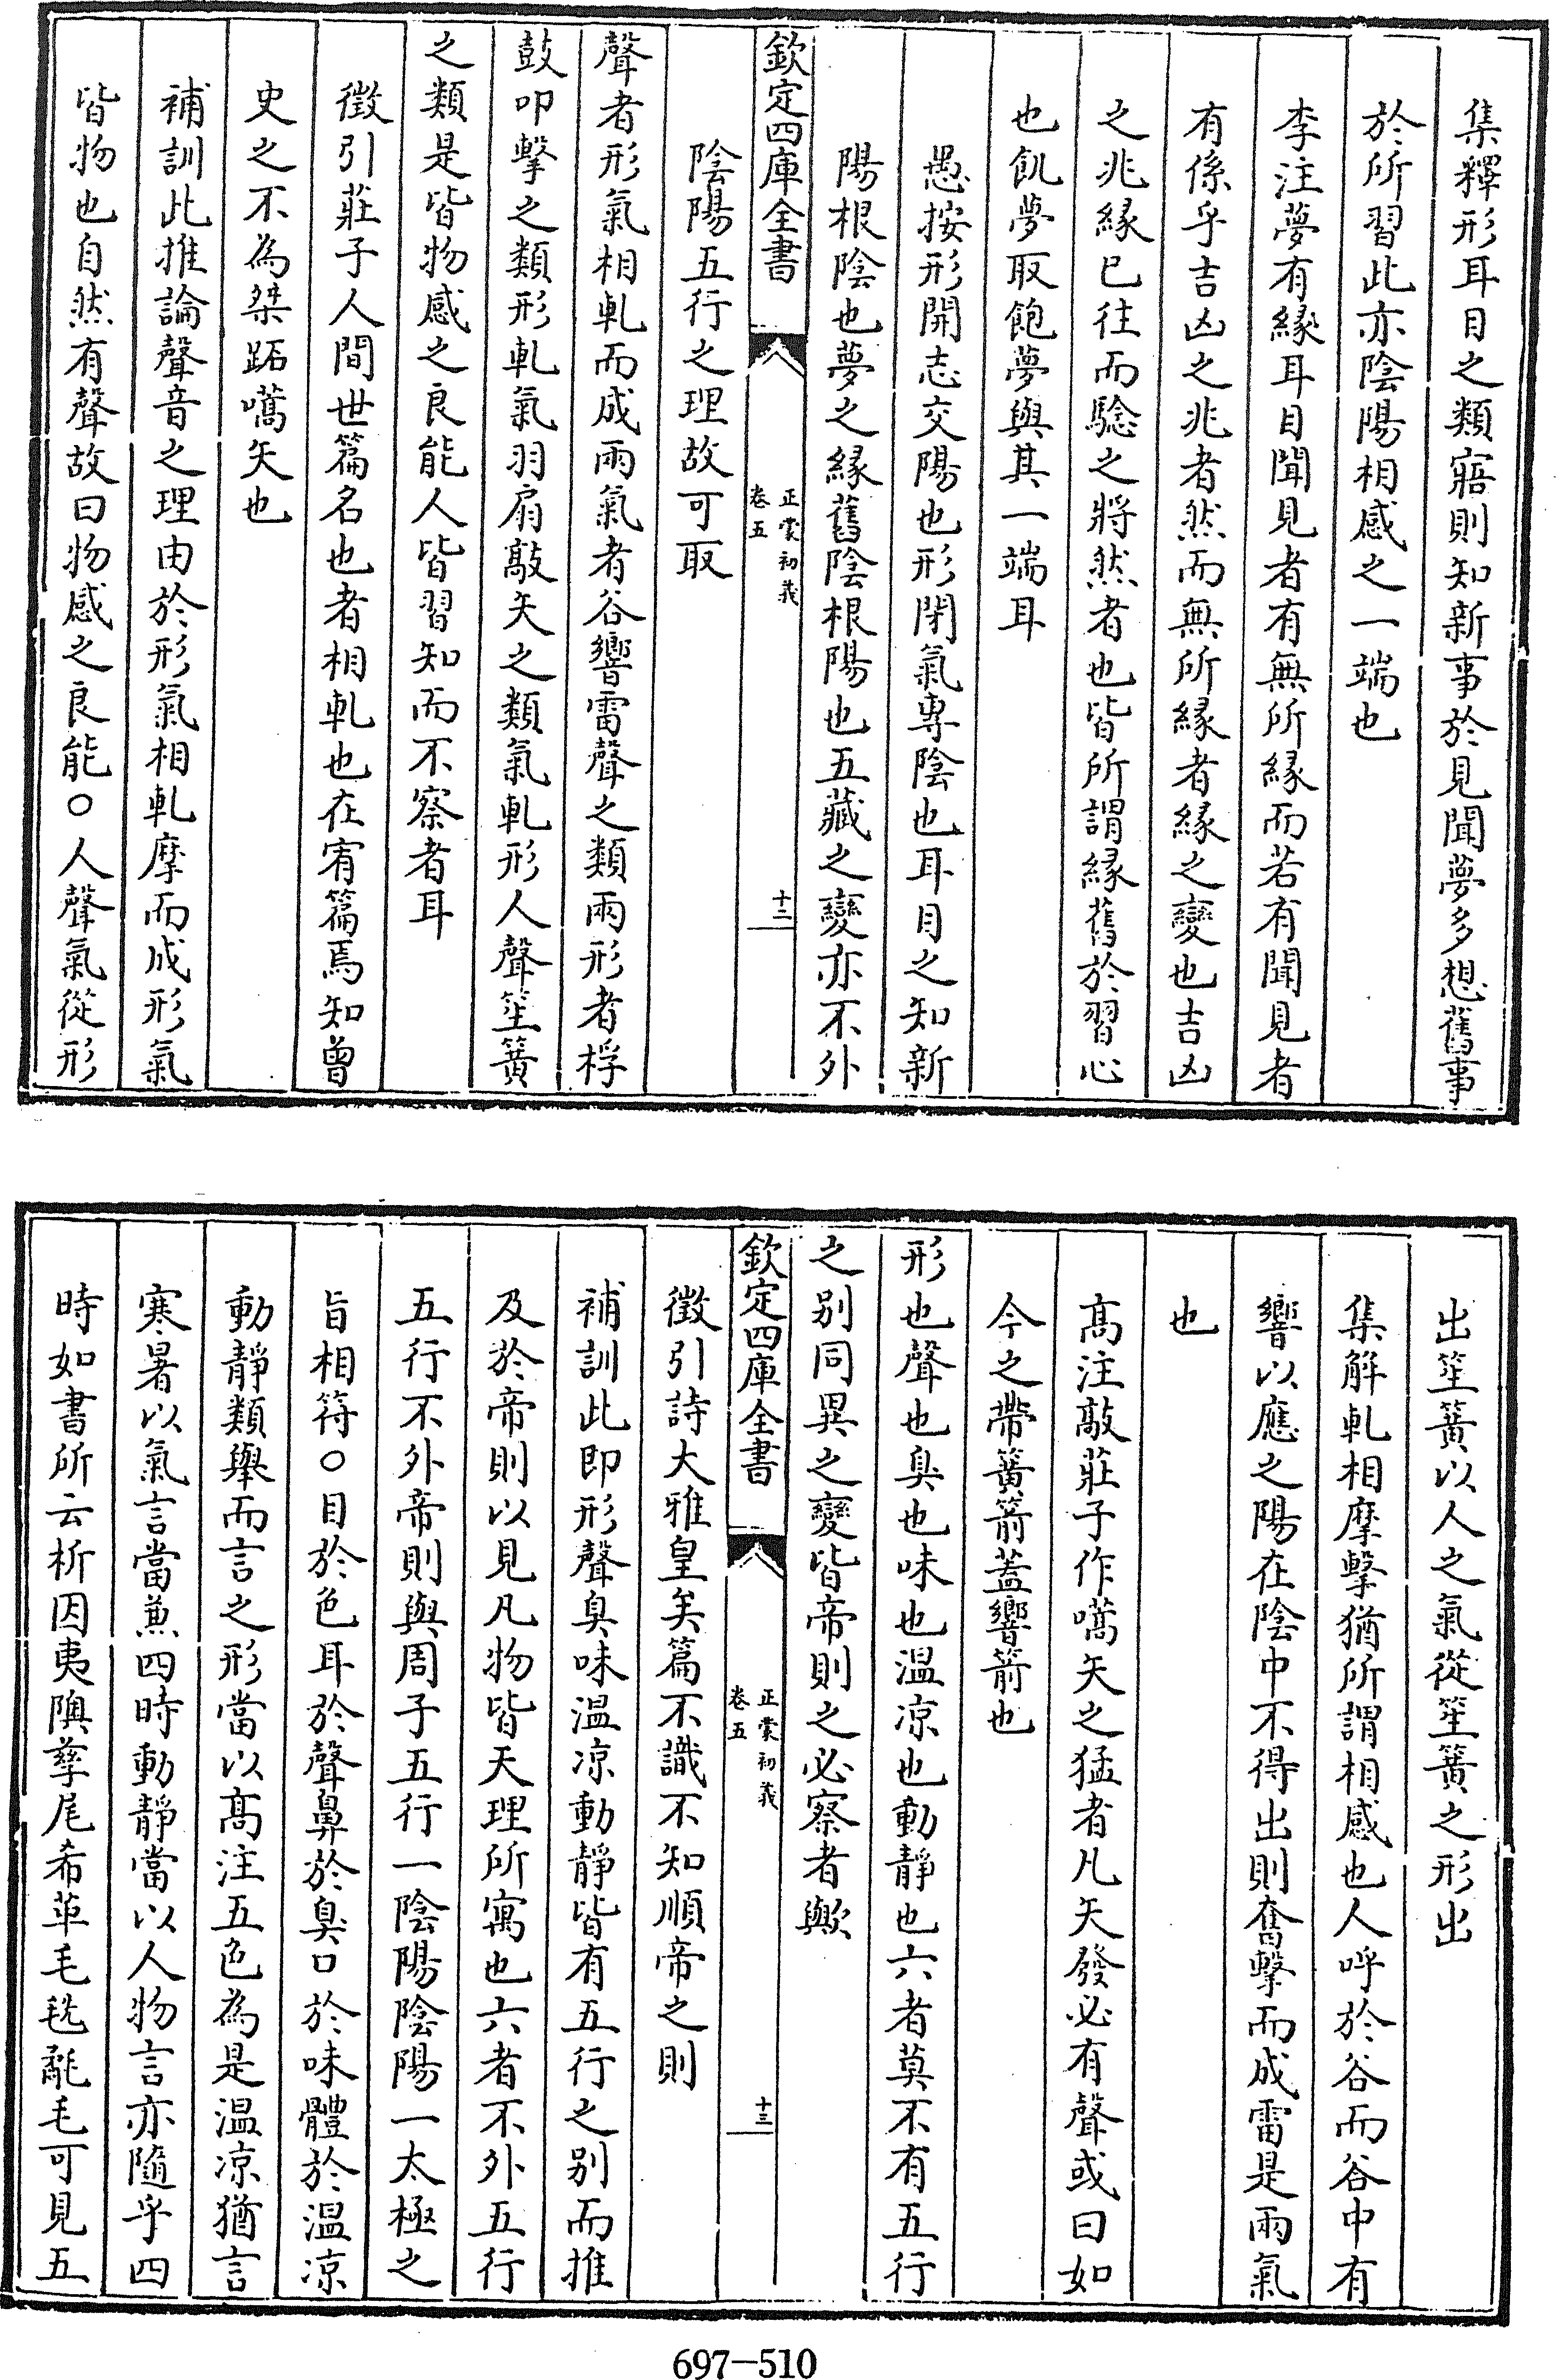 集釋形耳目之類寤則知新事於見聞夢多想舊事
於所習此亦陰陽相感之一端也
李注夢有緣耳目聞見者有無所緣而若有聞見者
有係乎吉凶之兆者然而無所緣者緣之變也吉凶
之兆緣已往而騐之將然者也皆所謂緣舊於習心
也飢夢取飽夢與其一端耳
愚按形開志交陽也形閉氣專陰也耳目之知新
陽根陰也夢之緣舊陰根陽也五藏之變亦不外
欽定四庫全書
正蒙初義
卷五
十二
陰陽五行之理故可取
聲者形氣相軋而成兩氣者谷響雷聲之類兩形者桴
鼓叩擊之類形軋氣羽扇敲矢之類氣軋形人聲笙簧
之類是皆物感之良能人皆習知而不察者耳
徵引莊子人間世篇名也者相軋也在宥篇焉知曾
史之不為桀跖嚆矢也
補訓此推論聲音之理由於形氣相軋摩而成形氣
皆物也自然有聲故曰物感之良能○人聲氣從形
出笙簧以人之氣從笙簧之形出
集解軋相摩擊猶所謂相感也人呼於谷而谷中有
響以應之陽在陰中不得出則奮擊而成雷是兩氣
也
高注敲莊子作嚆矢之猛者凡矢發必有聲或曰如
今之帶簧箭蓋響箭也
形也聲也臭也味也溫凉也動靜也六者莫不有五行
之别同異之變皆帝則之必察者歟
欽定四庫全書
正蒙初義
卷五
十三
徵引詩大雅皇矣篇不識不知順帝之則
補訓此即形聲臭味溫凉動靜皆有五行之别而推
及於帝則以見凡物皆天理所寓也六者不外五行
五行不外帝則與周子五行一陰陽陰陽一太極之
旨相符○目於色耳於聲鼻於臭口於味體於溫凉
動靜類舉而言之形當以高注五色為是溫凉猶言
寒暑以氣言當兼四時動靜當以人物言亦隨乎四
時如書所云析因夷隩孳尾希革毛毨氄毛可見五
697-510